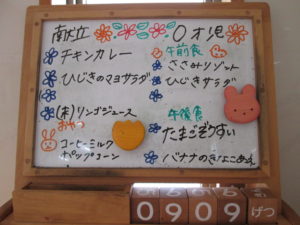 献立
チキンカレー
ひじきのマヨサラダ
(木)リンゴジュース
おやつ
コーヒーミルク
ポップコーン
0才児
午前食
ささみリゾット
ひじきサラダ
午後食
たまごぞうすい
バナナのきなこあえ
0909
げつ